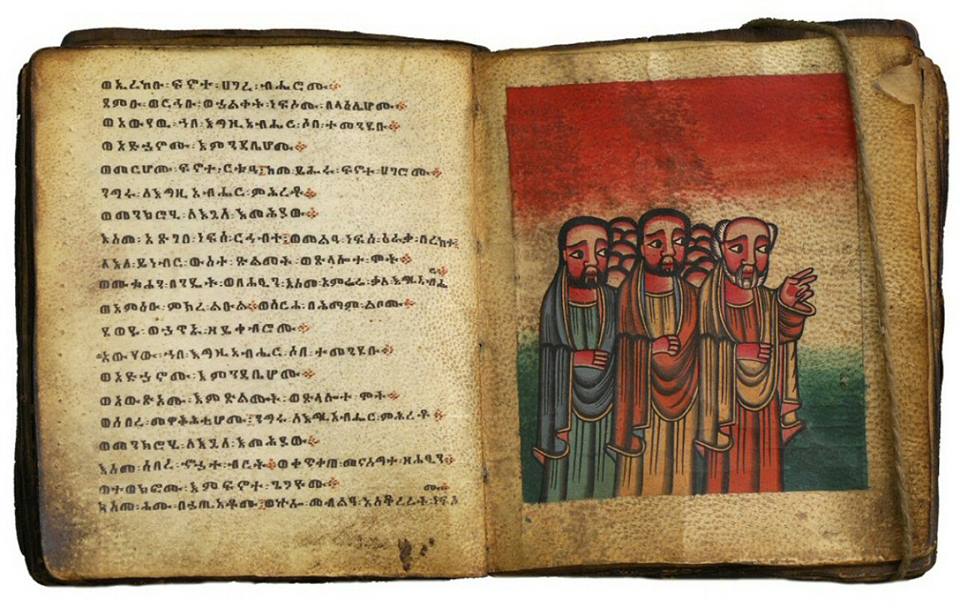 ወኢረከቡ ፡ ፍኖተ ፡ ሀገረ ፡ ብሔሮሙ ።
ጸምኡ ፡ ወርኅቡ ፡ ወኃልቀት ፡ ነፍሶሙ ፡ በላዕሌሆሙ ።
ወአውየዉ ፡ ኀበ ፡ እግዚአብሔር ፡ ሶበ ፡ ተመንደቡ ።
ወአድኃኖሙ ፡ እምንዳቤሆሙ ።
ወመርሖሙ ፡ ፍኖተ ፡ ርቱዓ ፤ ከመ ፡ ይሑሩ ፡ ፍኖተ ፡ ሀገሮሙ ።
ንግሩ ፡ ለእግዚአብሔር ፡ ምሕረቶ ።
ወመንክሮሂ ፡ ለእጓለ ፡ እመሕያው ።
እስመ ፡ አጽገበ ፡ ነፍሰ ፡ ርኅብተ ፤ ወመልዓ ፡ ነፍሰ ፡ ዕራቃ ፡ በረከተ ።
ለእለ ፡ ይነብሩ ፡ ውስተ ፡ ጽልመት ፡ ወጽላሎተ ፡ ሞት ።
ወሙቁሓን ፡ በንዴት ፡ ወበሐፂን ፡ እስመ ፡ አምረሩ ፡ ቃለ ፡ እግዚአብሔር
ወአምዕዑ ፡ ምክረ ፡ ልዑል ። ወሰርሐ ፡ በሕማም ፡ ልቦሙ ።
ወኃጥኡ ፡ ዘይቀብሮሙ ።
አውየዉ ፡ ኀበ ፡ እግዚአብሔር ፡ ሶበ ፡ ተመንደቡ ።
ወአድኃኖሙ ፡ እምንዳቤሆሙ ።
ወአውጽኦሙ ፡ እምጽልመት ፡ ወጽላሎተ ፡ ሞት ።
ወሰበረ ፡ መዋቅሕቲሆሙ ። ንግሩ ፡ ለእግዚአብሔር ፡ ምሕረቶ ።
ወመንክሮሂ ፡ ለእጓለ ፡ እመሕያው ።
እስመ ፡ ሰበረ ፡ ኆኃተ ፡ ብርት ። ወቀጥቀጠ ፡ መናሥግተ ፡ ዘሐፂን ።
ወተወክፎሙ ፡ እምፍኖተ ፡ ጌጋዮሙ ።
እስመ ፡ ሐሙ ፡ በኃጢአቶሙ